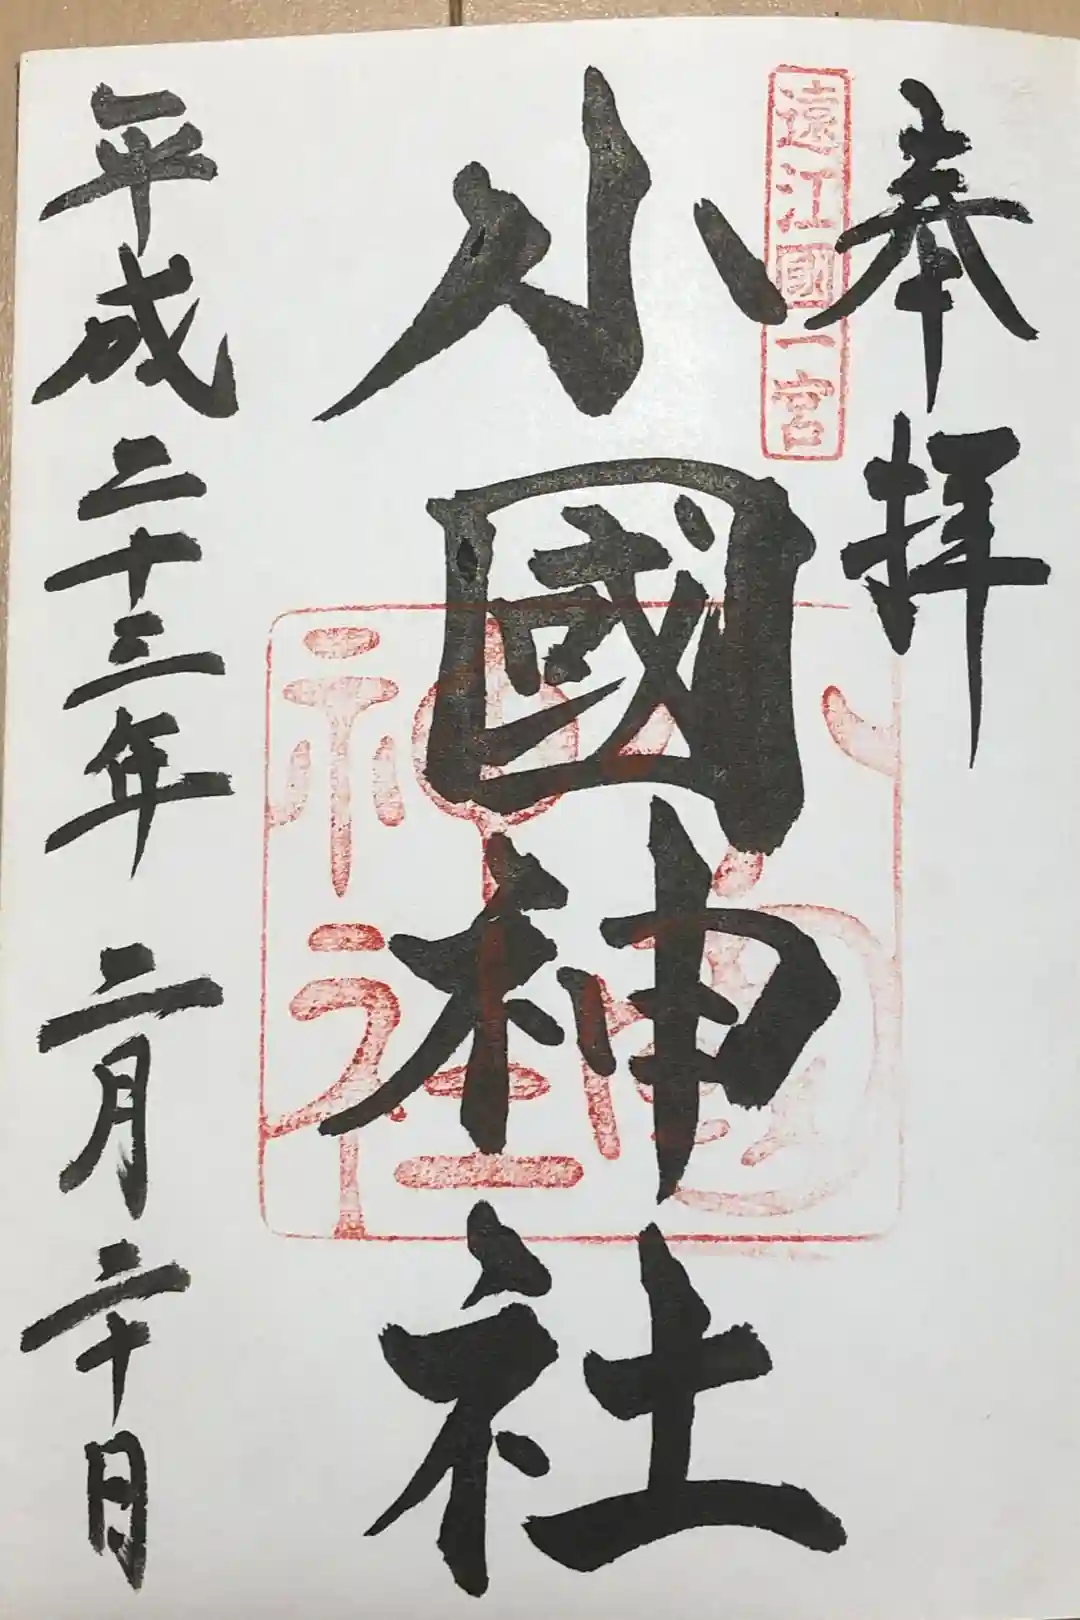 奉拝
遠江國一宮
小國神社
小國神社
平成二十三年 二月 二十日